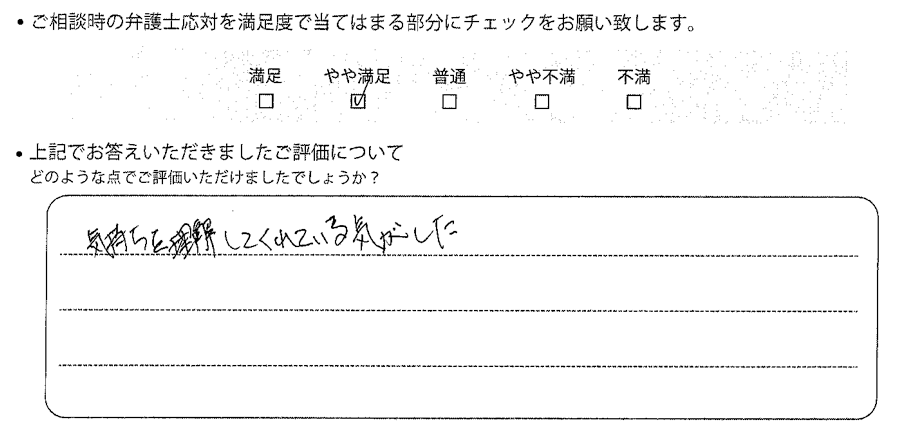 ・ご相談時の弁護士応対を満足度で当てはまる部分にチェックをお願い致します。
満足 やや満足 普通 やや不満 不満
□ ☑ □ □ □
・上記でお答えいただきましたご評価について
どのような点でご評価いただけましたでしょうか？
気持ちを理解してくれている気がした